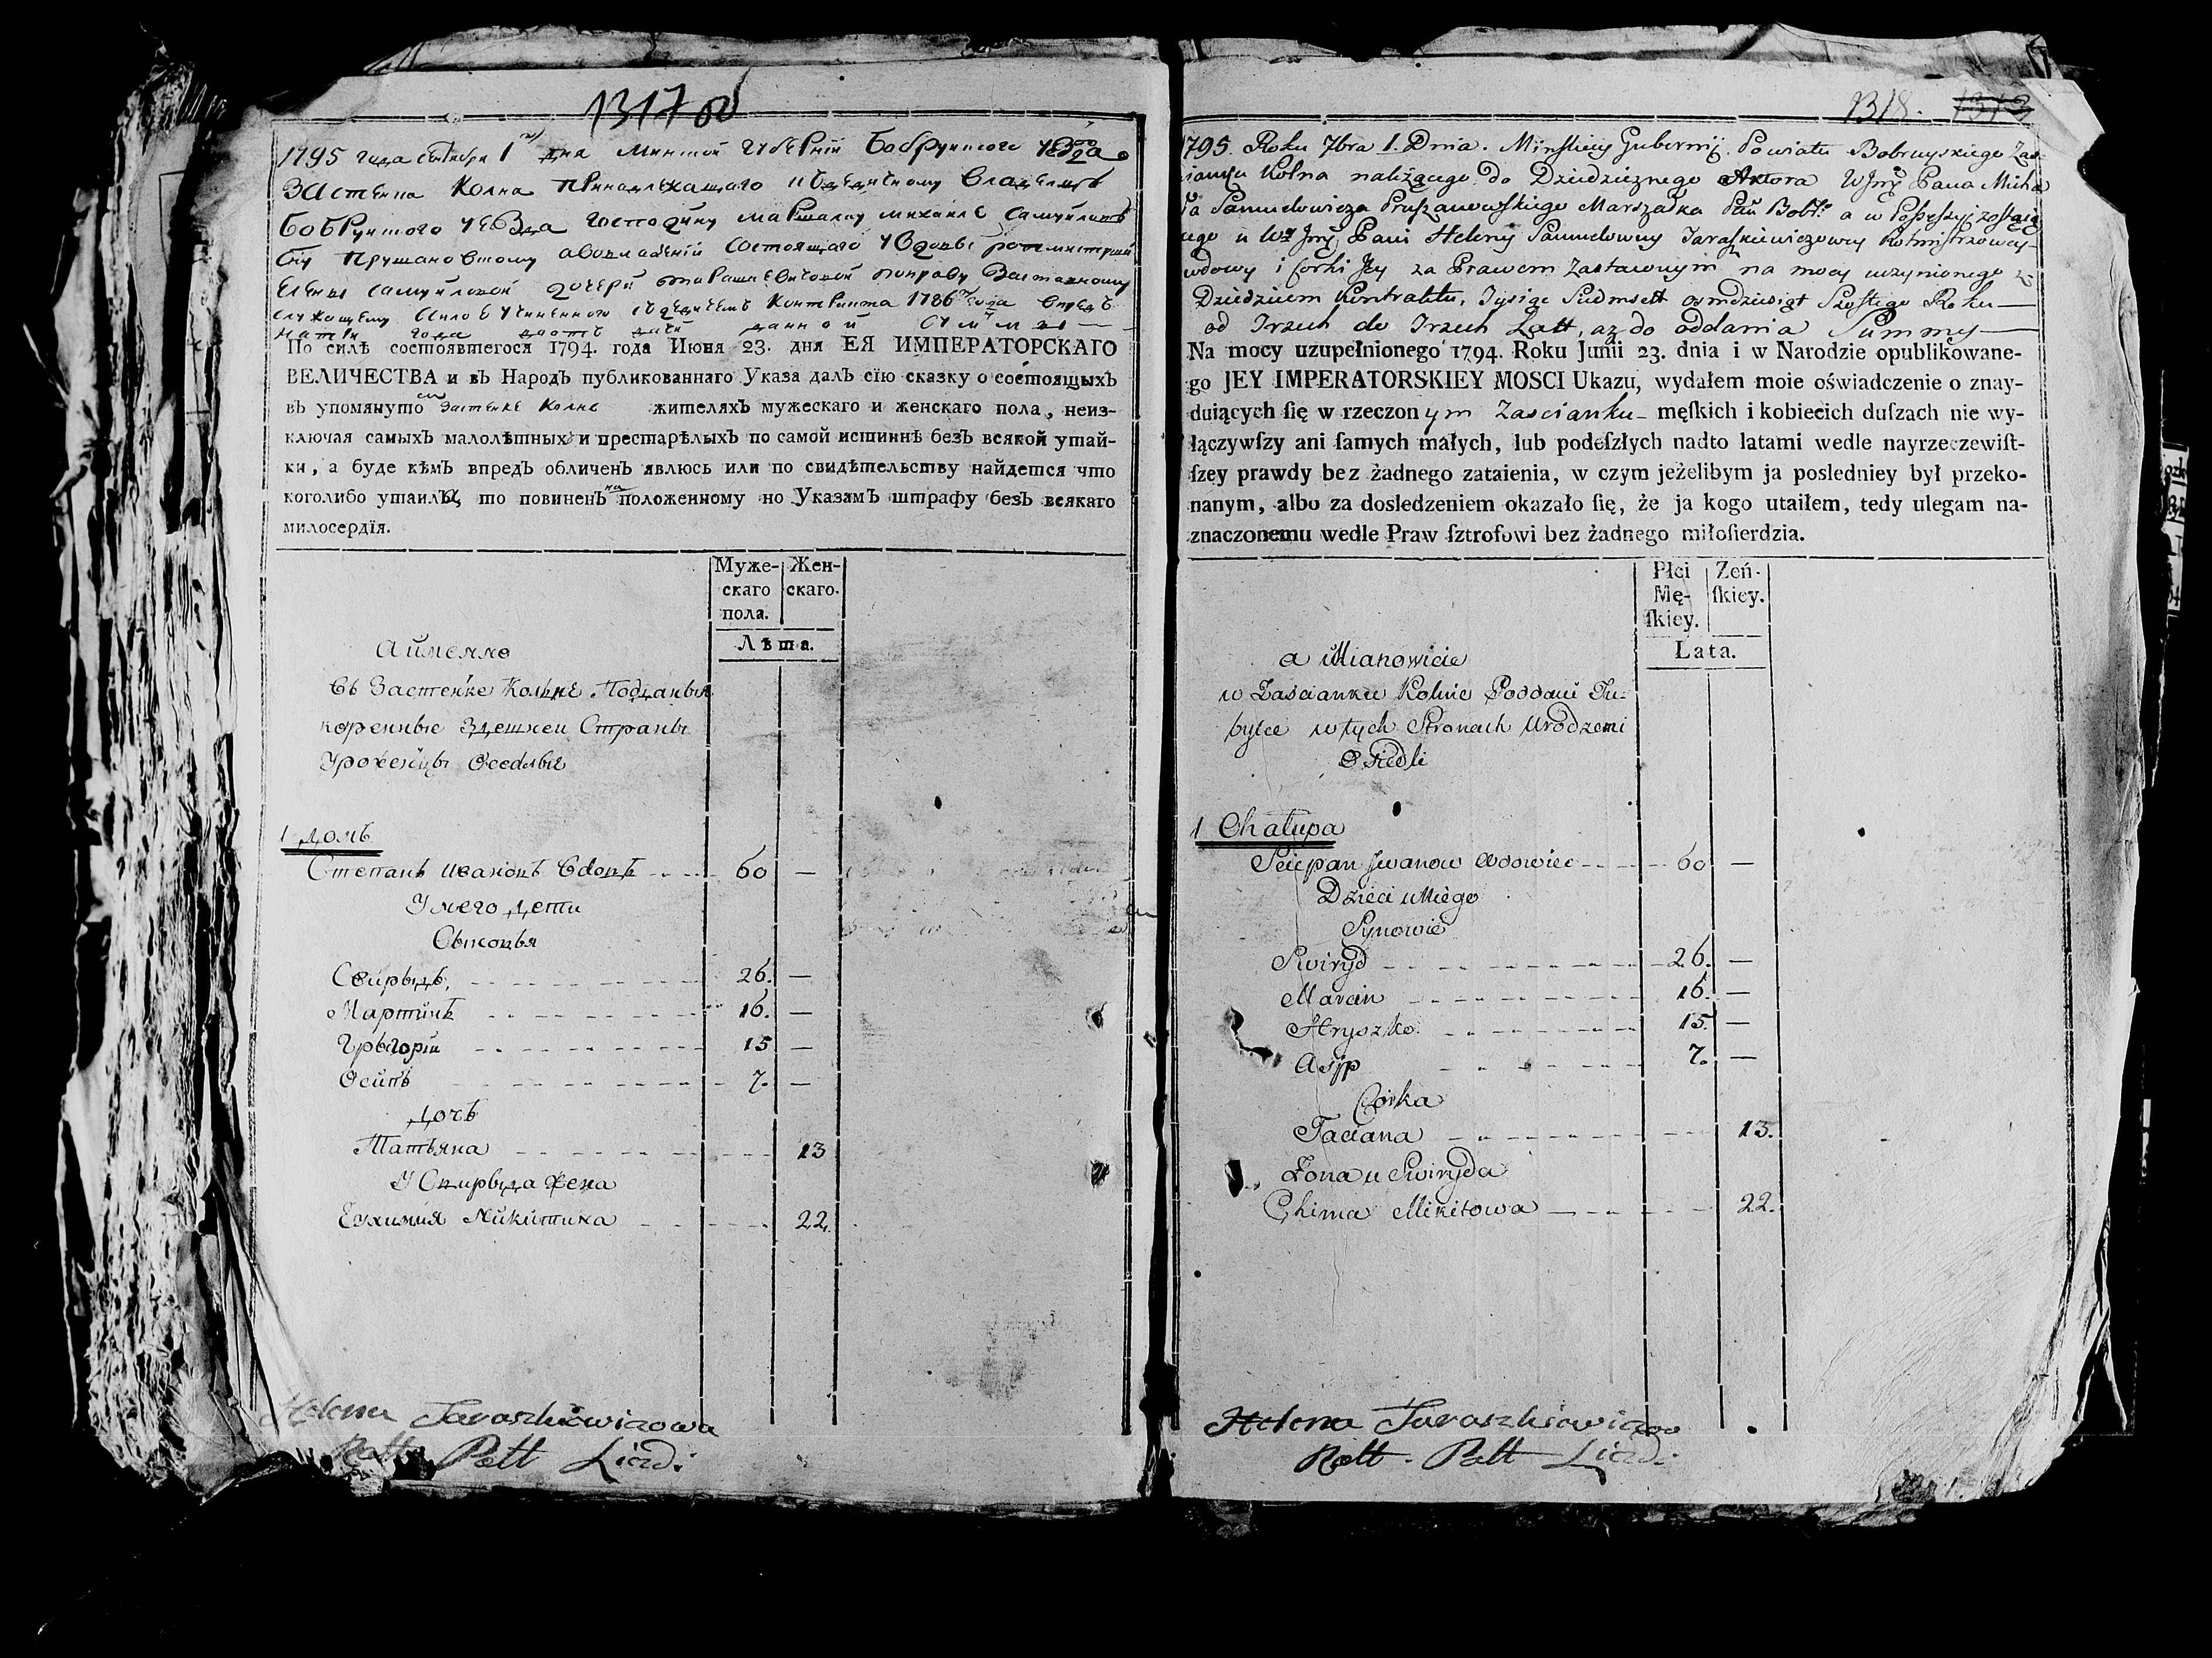 1317 об
1795 года сентября 1 дня Минской губерний Бобруйского уезда
Застенка Колна принадлежащаго
Бобруйского уезда господину маршалку Михайле
Прушановскому состоящаго у вдовы
Елены Самуйловой дочери Тарашкевичовой по праву заставному
служащему контракта 1786 года
По силѣ состоявшегося 1794. года Июня 23. дня ЕЯ ИМПЕРАТОРСКАГО
ВЕЛИЧЕСТВА и въ Народъ публикованнаго Указа далъ сїю сказку о состоящыхъ
въ упомянуто застенке Колне жителяхъ мужескаго и женскаго пола, неиз-
ключая самыхъ малолѣтныхъ и престарѣлыхъ по самой истиннѣ безъ всякой утай-
ки, а буде кѣмъ впредъ обличенъ явлюсь или по свидѣтельству найдется что
коголибо утаилъ, то повиненъ положенному по Указамъ штрафу безъ всякаго
милосердїя.
Муже- Жен-
скаго скаго.
пола.
Лѣта.
а именно
въ Застенке Кольне Подданыя
коренные здешней Страны
Уроженцы Оседлые
1 домъ
Степанъ Ивановъ вдовецъ 60 —
У него дети
Сыновья
Свирыдъ, 26. —
Мартинъ 16. —
Грыгорїй 15 —
Осипъ 7. —
дочь
Татьяна 13
У Свирыда жена
Евхимия Микитина 22.
Helena Taraszkiewiczowa
Rott. Patt Liczdi
1318. 1313
1795. Roku 7bra 1. Dnia. Minskiey Gubernij. Powiatu Bobruyskiego Zas-
cianku Kolna należącego do Dziedzicznego Aktora WJmć Pana Micha
ła Samuelowicza Pruszanowskiego Marszałka Bobr. a w Possessyi zostaią
cego u Jmć Pani Heleny Samuelowny Taraszkiewiczowey Rotmistrzowey
wdowy i corki Jey za Prawem Zastawnym na mocy uczynionego z
Dziedzicem Kontraktu, Tysiąc Siedmsett osmdziesiąt Szostego Roku
od Trzech do Trzech Latt, aż do oddania Summy
Na mocy uzupełnionego 1794. Roku Junii 23. dnia i w Narodzie opublikowane-
go JEY IMPERATORSKIEY MOSCI Ukazu, wydałem moie oświadczenie o znay-
duiących ſię w rzeczonym Zascianku męſkich i kobiecich duſzach nie wy-
łączywſzy ani ſamych małych, lub podeſzłych nadto latami wedle nayrzeczewiſt-
ſzey prawdy bez żadnego zataienia, w czym jeżelibym ja posledniey był przeko-
nanym, albo za dosledzeniem okazało ſię, że ja kogo utaiłem, tedy ulegam na-
znaczonemu wedle Praw ſztrofowi bez żadnego miłoſierdzia.
Płci Zeń-
Mę- ſkiey.
ſkiey.
Lata.
a Mianowicie
w Zascianku Kolnie Poddani Tu-
bylce w tych Stronach Urodzeni
Osiedli
1 Chałupa
Sciepan Jwanow Wdowiec 60 —
Dzieci u Niego
Synowie
Swiryd 26. —
Marcin 16. —
Hryszko 15. —
Asip 7. —
Corka
Taciana 13.
Żona u Swiryda
Chima Mikitowa 22.
Helena Taraszkiewiczow
Rott. Patt Liczdi